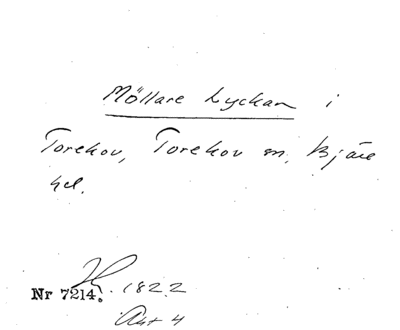 Möllare Lyckan i
Torekov, Torekov sn, Bjäre
hd.
1822
Nr 7214.
Akt 4